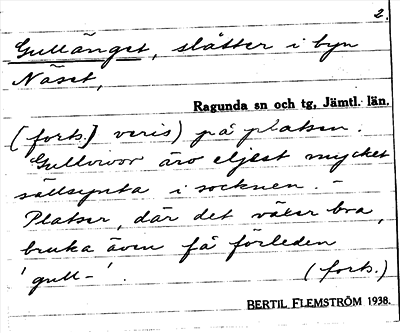 2.
Gullänget, slåtter i byn
Näset,
Ragunda sn och tg, Jämtl. län.
(forts.) veris) på platsen.
Gullvivor äro eljest mycket
sällsynta i socknen. –
Platser, där det växer bra,
bruka även få förleden
'gull-'. (forts.)
BERTIL FLEMSTRÖM 1938.